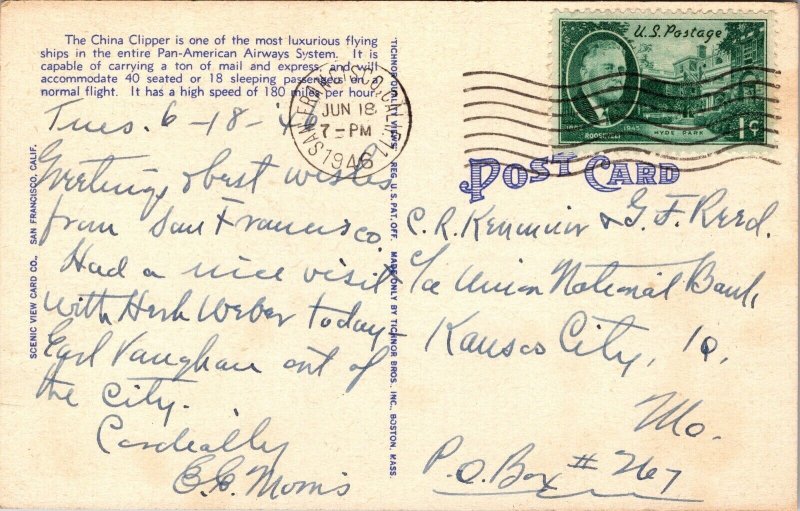 The China Clipper is one of the most luxurious flying
ships in the entire Pan-American Airways System. It is
capable of carrying a ton of mail and express, and will
accommodate 40 seated or 18 sleeping passengers on a
normal flight. It has a high speed of 180 miles per hour.
Tues. 6-18-46
Greetings & best wishes
from San Francisco.
Had a nice visit
with Herb Weber today-
Earl Vaughan out of
the city.
Cordially
E.C. Morris
SCENIC VIEW CARD CO., SAN FRANCISCO, CALIF.
TICHNOR QUALITY VIEWS, REG. U. S. PAT. OFF. MADE ONLY BY TICHNOR BROS., INC., BOSTON, MASS.
SAN FRANCISCO, CALIF. 11
JUN 18
7-PM
1946
U.S. Postage
ROOSEVELT
HYDE PARK
1¢
POST CARD
C. R. & G. F. Reed.
c/o Union National Bank,
Kansas City, 10,
Mo.
P.O. Box #267